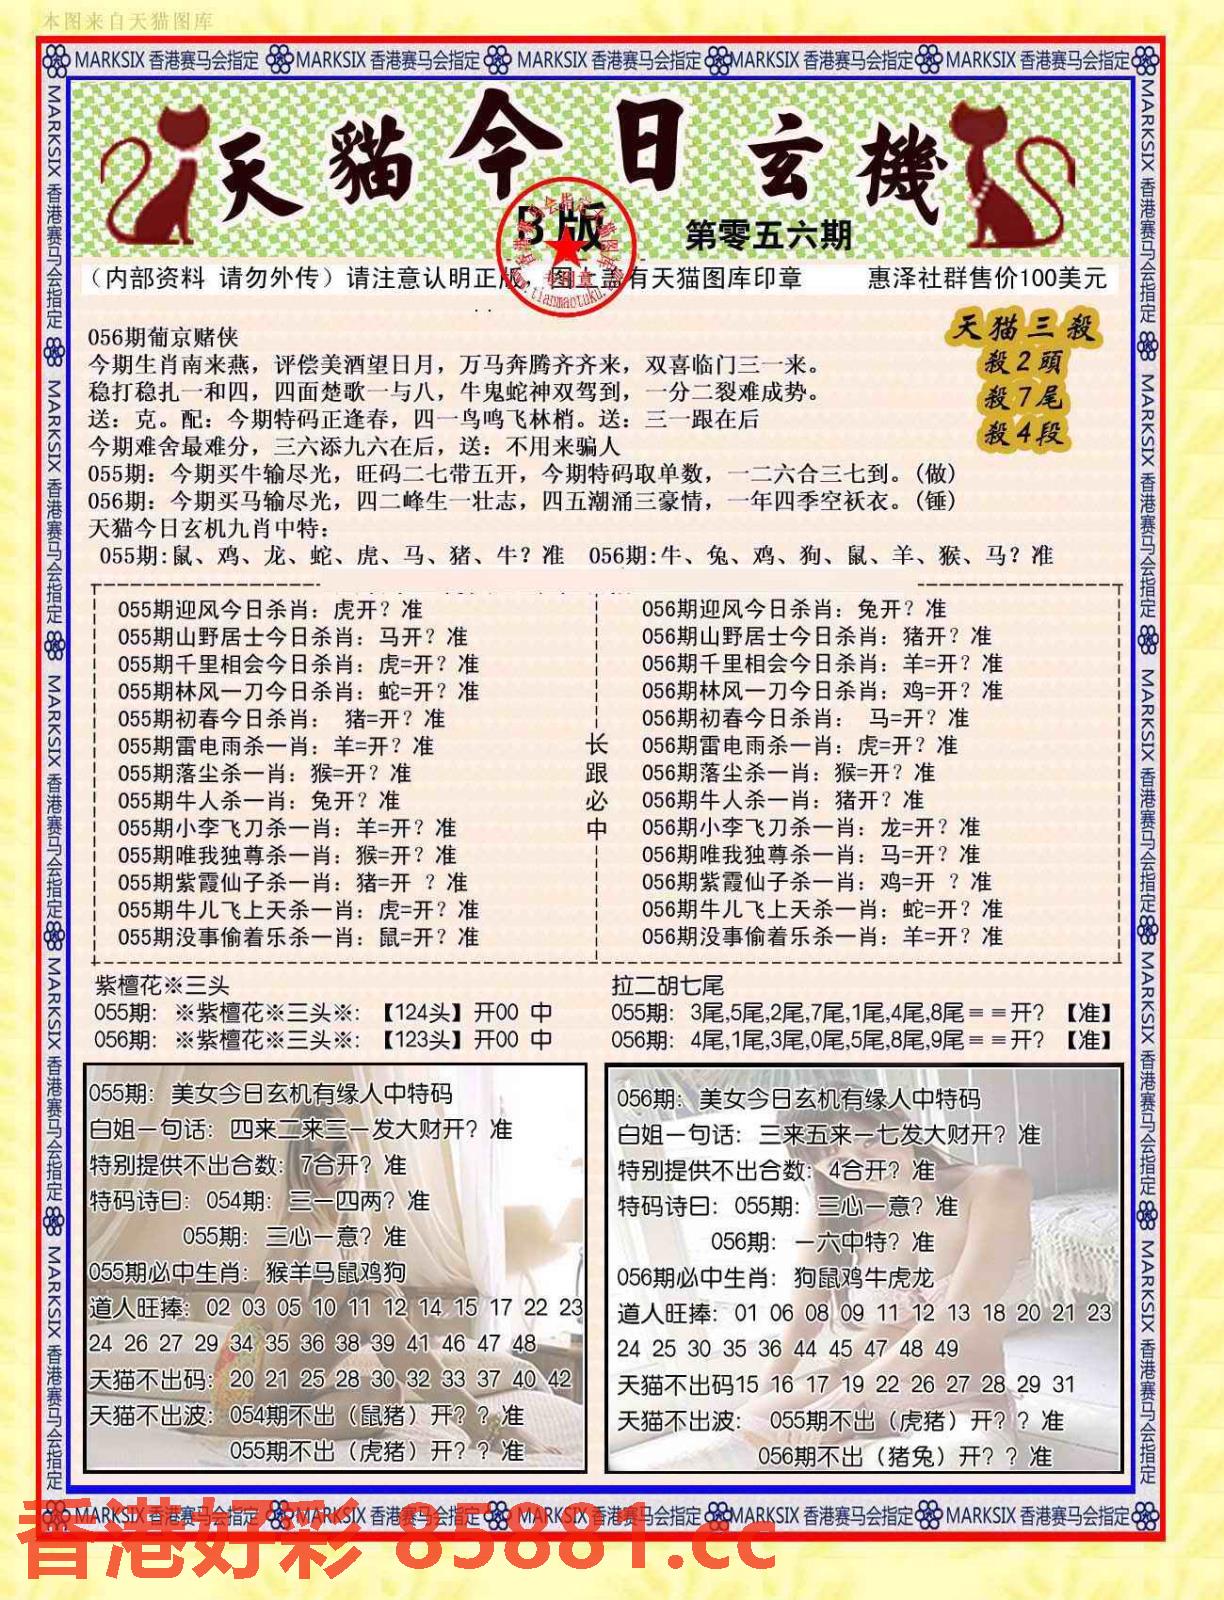 本图来自天猫图库
MARKSIX 香港赛马会指定 MARKSIX 香港赛马会指定 MARKSIX 香港赛马会指定 MARKSIX 香港赛马会指定 MARKSIX 香港赛马会指定
MARKSIX 香港赛马会指定 MARKSIX 香港赛马会指定 MARKSIX 香港赛马会指定 MARKSIX 香港赛马会指定 MARKSIX 香港赛马会指定
天貓今日玄機
B版
第零五六期
(内部资料 请勿外传)请注意认明正版 图上盖有天猫图库印章 惠泽社群售价100美元
专用章
www.tianmaotuku.
天猫三殺
殺2頭
殺7尾
殺4段
056期葡京赌侠
今期生肖南来燕，评偿美酒望日月，万马奔腾齐齐来，双喜临门三一来。
稳打稳扎一和四，四面楚歌一与八，牛鬼蛇神双驾到，一分二裂难成势。
送：克。配：今期特码正逢春，四一鸟鸣飞林梢。送：三一跟在后
今期难舍最难分，三六添九六在后，送：不用来骗人
055期：今期买牛输尽光，旺码二七带五开，今期特码取单数，一二六合三七到。(做)
056期：今期买马输尽光，四二峰生一壮志，四五潮涌三豪情，一年四季空袄衣。(锤)
天猫今日玄机九肖中特：
055期:鼠、鸡、龙、蛇、虎、马、猪、牛？准 056期:牛、兔、鸡、狗、鼠、羊、猴、马？准
055期迎风今日杀肖：虎开？准
055期山野居士今日杀肖：马开？准
055期千里相会今日杀肖：虎=开？准
055期林风一刀今日杀肖：蛇=开？准
055期初春今日杀肖： 猪=开？准
055期雷电雨杀一肖：羊=开？准
055期落尘杀一肖：猴=开？准
055期牛人杀一肖：兔开？准
055期小李飞刀杀一肖：羊=开？准
055期唯我独尊杀一肖：猴=开？准
055期紫霞仙子杀一肖：猪=开 ？准
055期牛儿飞上天杀一肖：虎=开？准
055期没事偷着乐杀一肖：鼠=开？准
长
跟
必
中
056期迎风今日杀肖：兔开？准
056期山野居士今日杀肖：猪开？准
056期千里相会今日杀肖：羊=开？准
056期林风一刀今日杀肖：鸡=开？准
056期初春今日杀肖： 马=开？准
056期雷电雨杀一肖：虎=开？准
056期落尘杀一肖：猴=开？准
056期牛人杀一肖：猪开？准
056期小李飞刀杀一肖：龙=开？准
056期唯我独尊杀一肖：马=开？准
056期紫霞仙子杀一肖：鸡=开 ？准
056期牛儿飞上天杀一肖：蛇=开？准
056期没事偷着乐杀一肖：羊=开？准
紫檀花※三头
055期： ※紫檀花※三头※：【124头】开00 中
056期： ※紫檀花※三头※：【123头】开00 中
拉二胡七尾
055期： 3尾,5尾,2尾,7尾,1尾,4尾,8尾＝＝开？【准】
056期： 4尾,1尾,3尾,0尾,5尾,8尾,9尾＝＝开？【准】
055期：美女今日玄机有缘人中特码
白姐一句话：四来二来三一发大财开？准
特别提供不出合数：7合开？准
特码诗曰：054期：三一四两？准
055期：三心一意？准
055期必中生肖：猴羊马鼠鸡狗
道人旺捧：02 03 05 10 11 12 14 15 17 22 23
24 26 27 29 34 35 36 38 39 41 46 47 48
天猫不出码：20 21 25 28 30 32 33 37 40 42
天猫不出波：054期不出（鼠猪）开？？准
055期不出（虎猪）开？？准
056期：美女今日玄机有缘人中特码
白姐一句话：三来五来一七发大财开？准
特别提供不出合数：4合开？准
特码诗曰：055期：三心一意？准
056期：一六中特？准
056期必中生肖：狗鼠鸡牛虎龙
道人旺捧：01 06 08 09 11 12 13 18 20 21 23
24 25 30 35 36 44 45 47 48 49
天猫不出码15 16 17 19 22 26 27 28 29 31
天猫不出波： 055期不出（虎猪）开？？准
056期不出（猪兔）开？？准
MARKSIX 香港赛马会指定 MARKSIX 香港赛马会指定 MARKSIX 香港赛马会指定 MARKSIX 香港赛马会指定 MARKSIX 香港赛马会指定
MARKSIX 香港赛马会指定 MARKSIX 香港赛马会指定 MARKSIX 香港赛马会指定 MARKSIX 香港赛马会指定 MARKSIX 香港赛马会指定
香港好彩 85881.cc